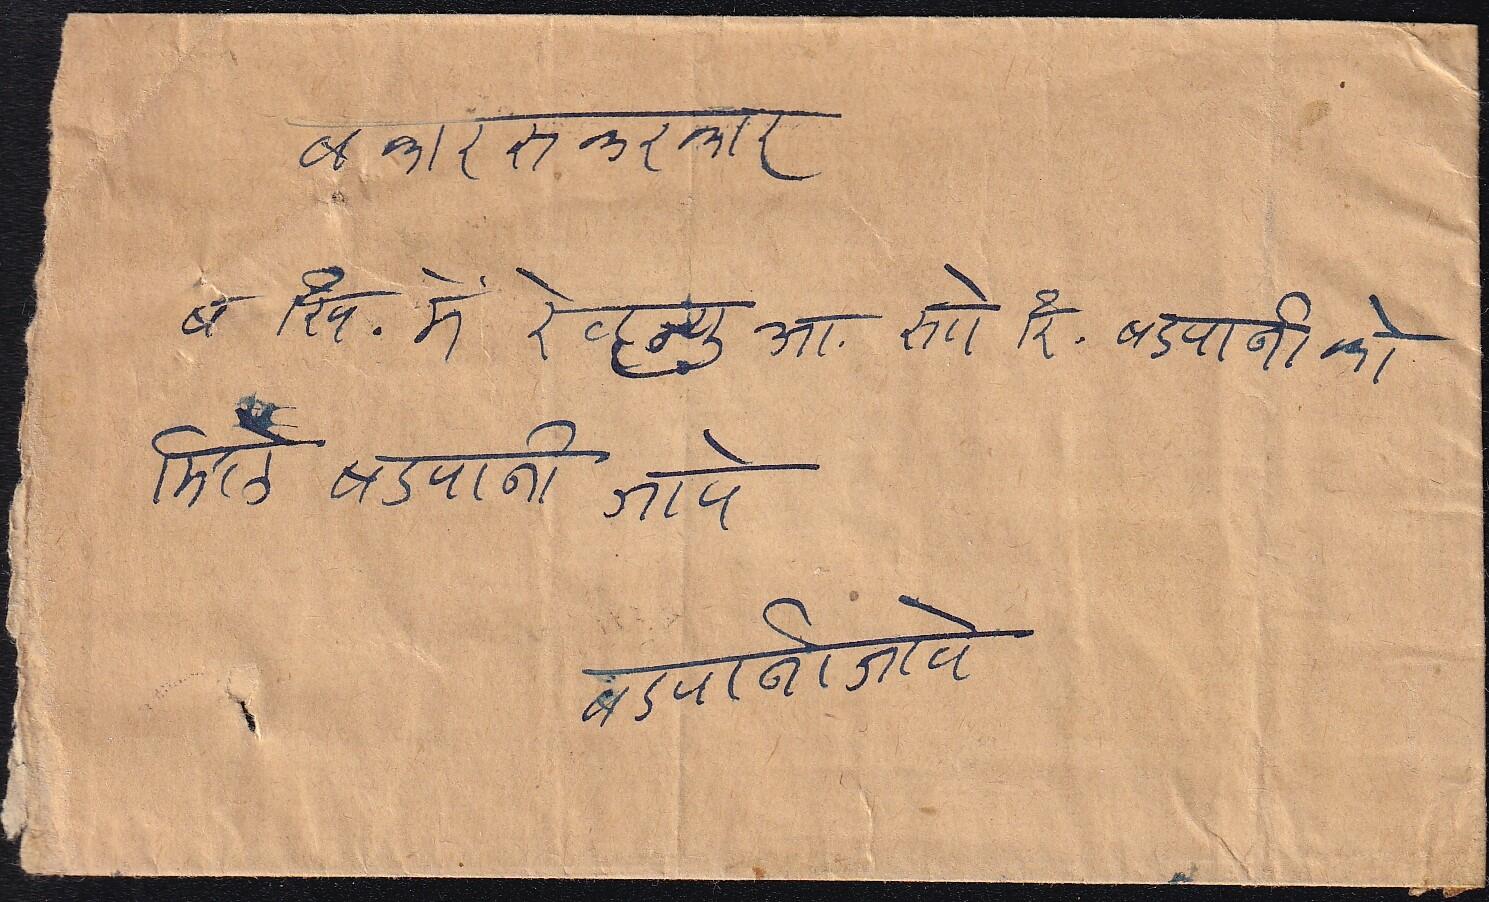 ब कार सरकार
ब खि. में रेव्हेन्यु आ. सा रि. बडवानी को
मिले बडवानी जावे
बडवानी जावे